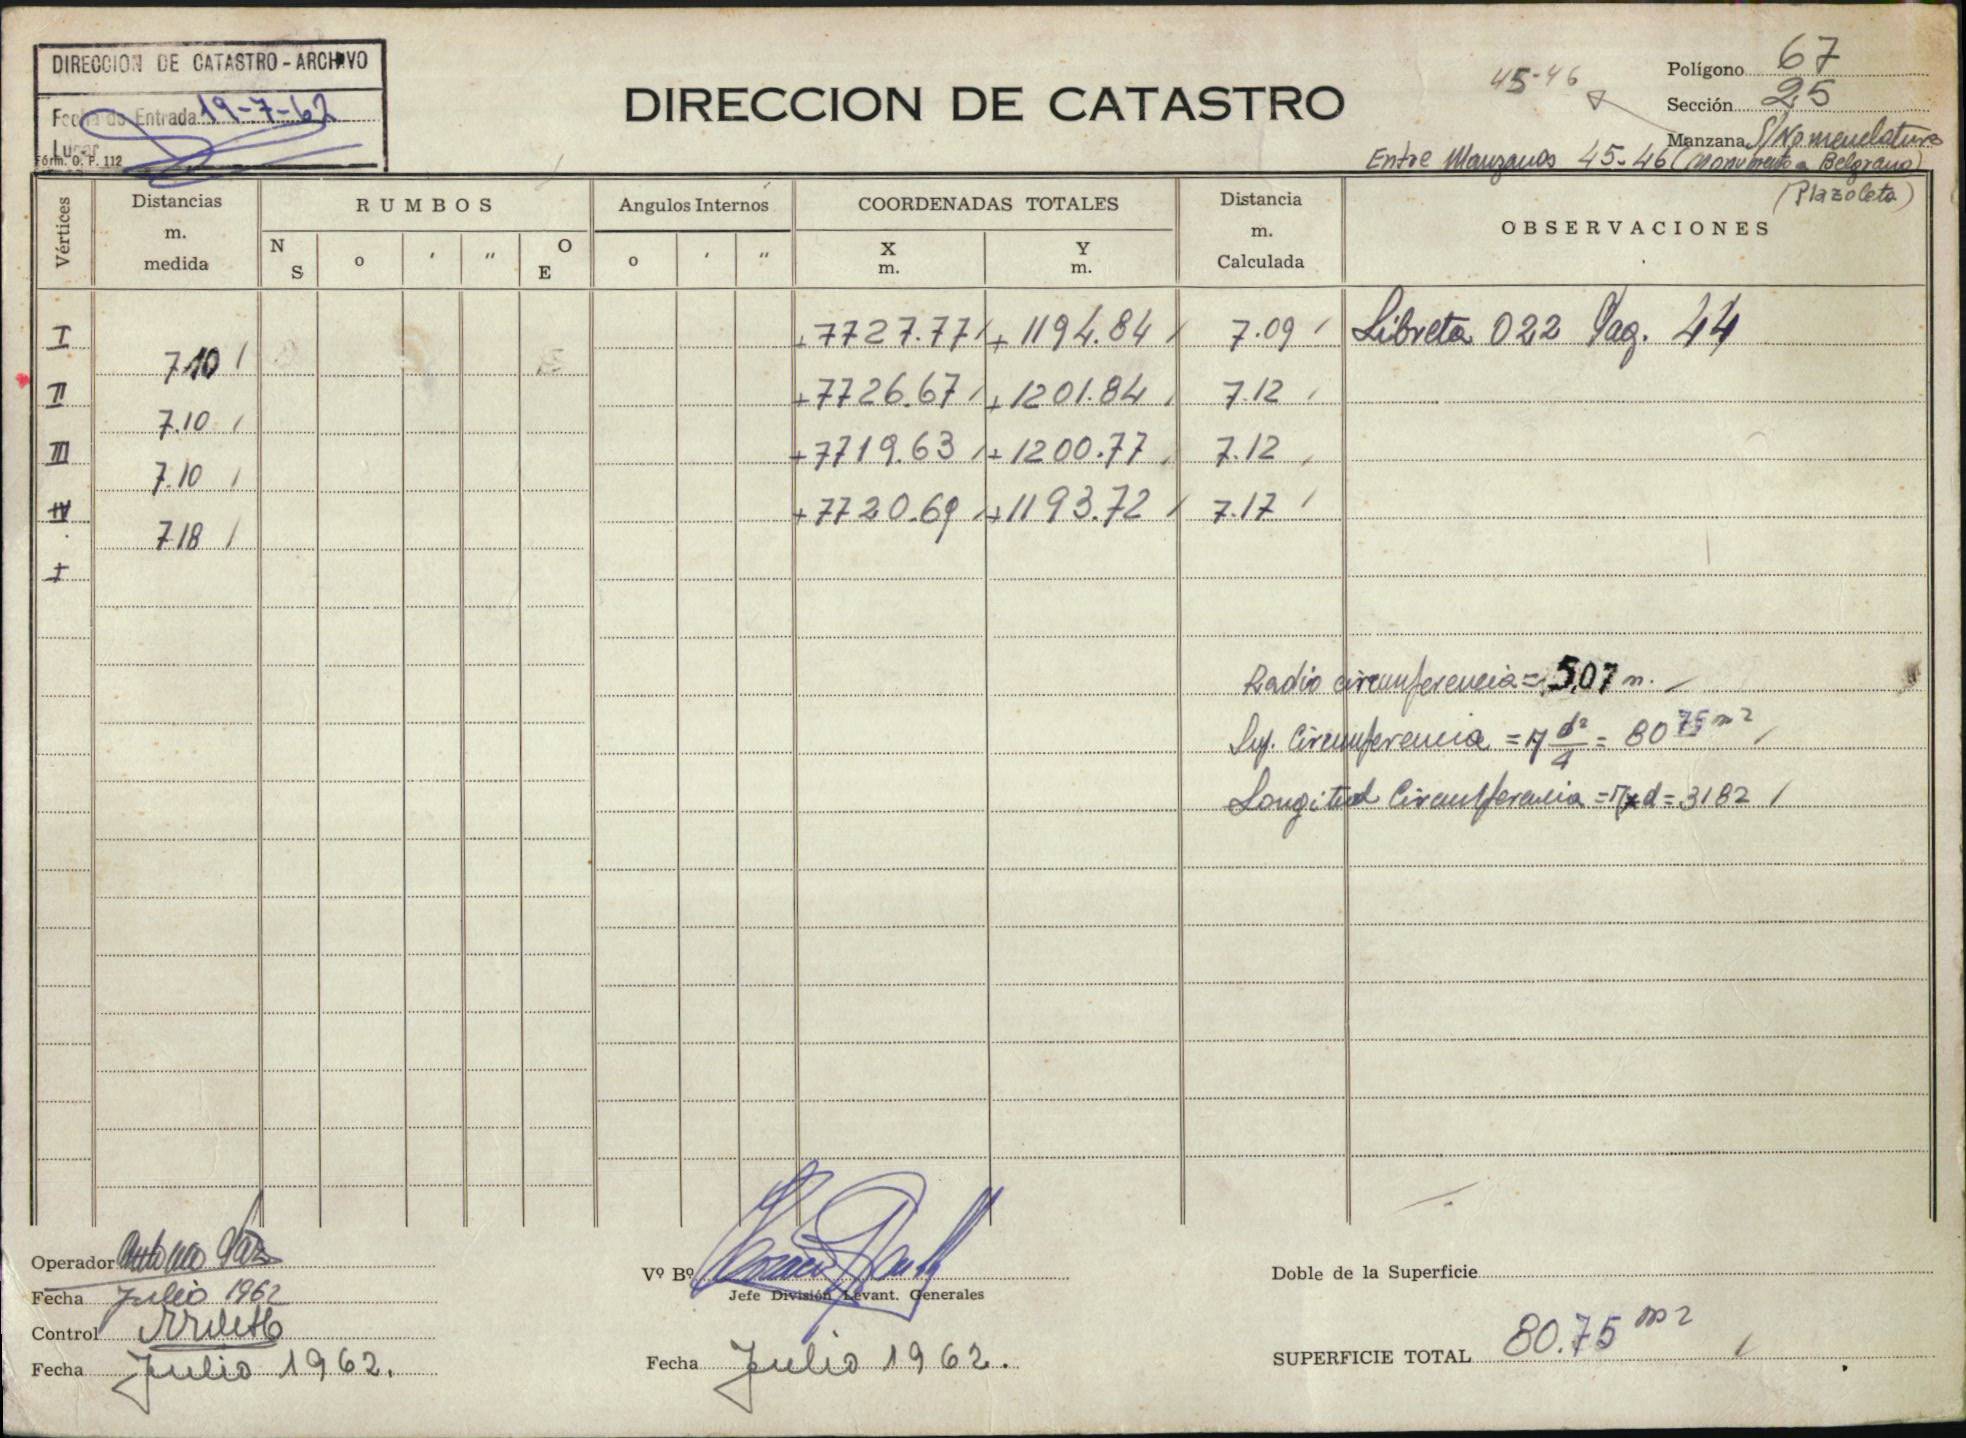 DIRECCION DE CATASTRO - ARCHIVO
Fecha de Entrada 19-7-62
Lugar
Fórm. O. P. 112
DIRECCION DE CATASTRO
45-46
Polígono 67
Sección 25
Manzana S/Nomenclatura
Entre Manzanas 45-46 (Monumento a Belgrano)
(Plazoleta)
Vértices
Distancias
m.
medida
RUMBOS
N S o ′ ″ O E
Angulos Internos
o ′ ″
COORDENADAS TOTALES
X
m.
Y
m.
Distancia
m.
Calculada
OBSERVACIONES
I +7727.77 + 1194.84 7.09 Libreta 022 Pag. 44
7.10
II +7726.67 +1201.84 7.12
7.10
III +7719.63 +1200.77 7.12
7.10
IV +7720.69 +1193.72 7.17
7.18
I
Radio circunferencia = 5,07 m.
Sup. Circunferencia = π d²/4 = 80 75 m2
Longitud Circunferencia = π x d = 3182
Operador Antonio Paz
Fecha Julio 1962
Control
Fecha Julio 1962.
Vº Bº
Jefe División Levant. Generales
Fecha Julio 1962.
Doble de la Superficie
SUPERFICIE TOTAL 80.75 m2